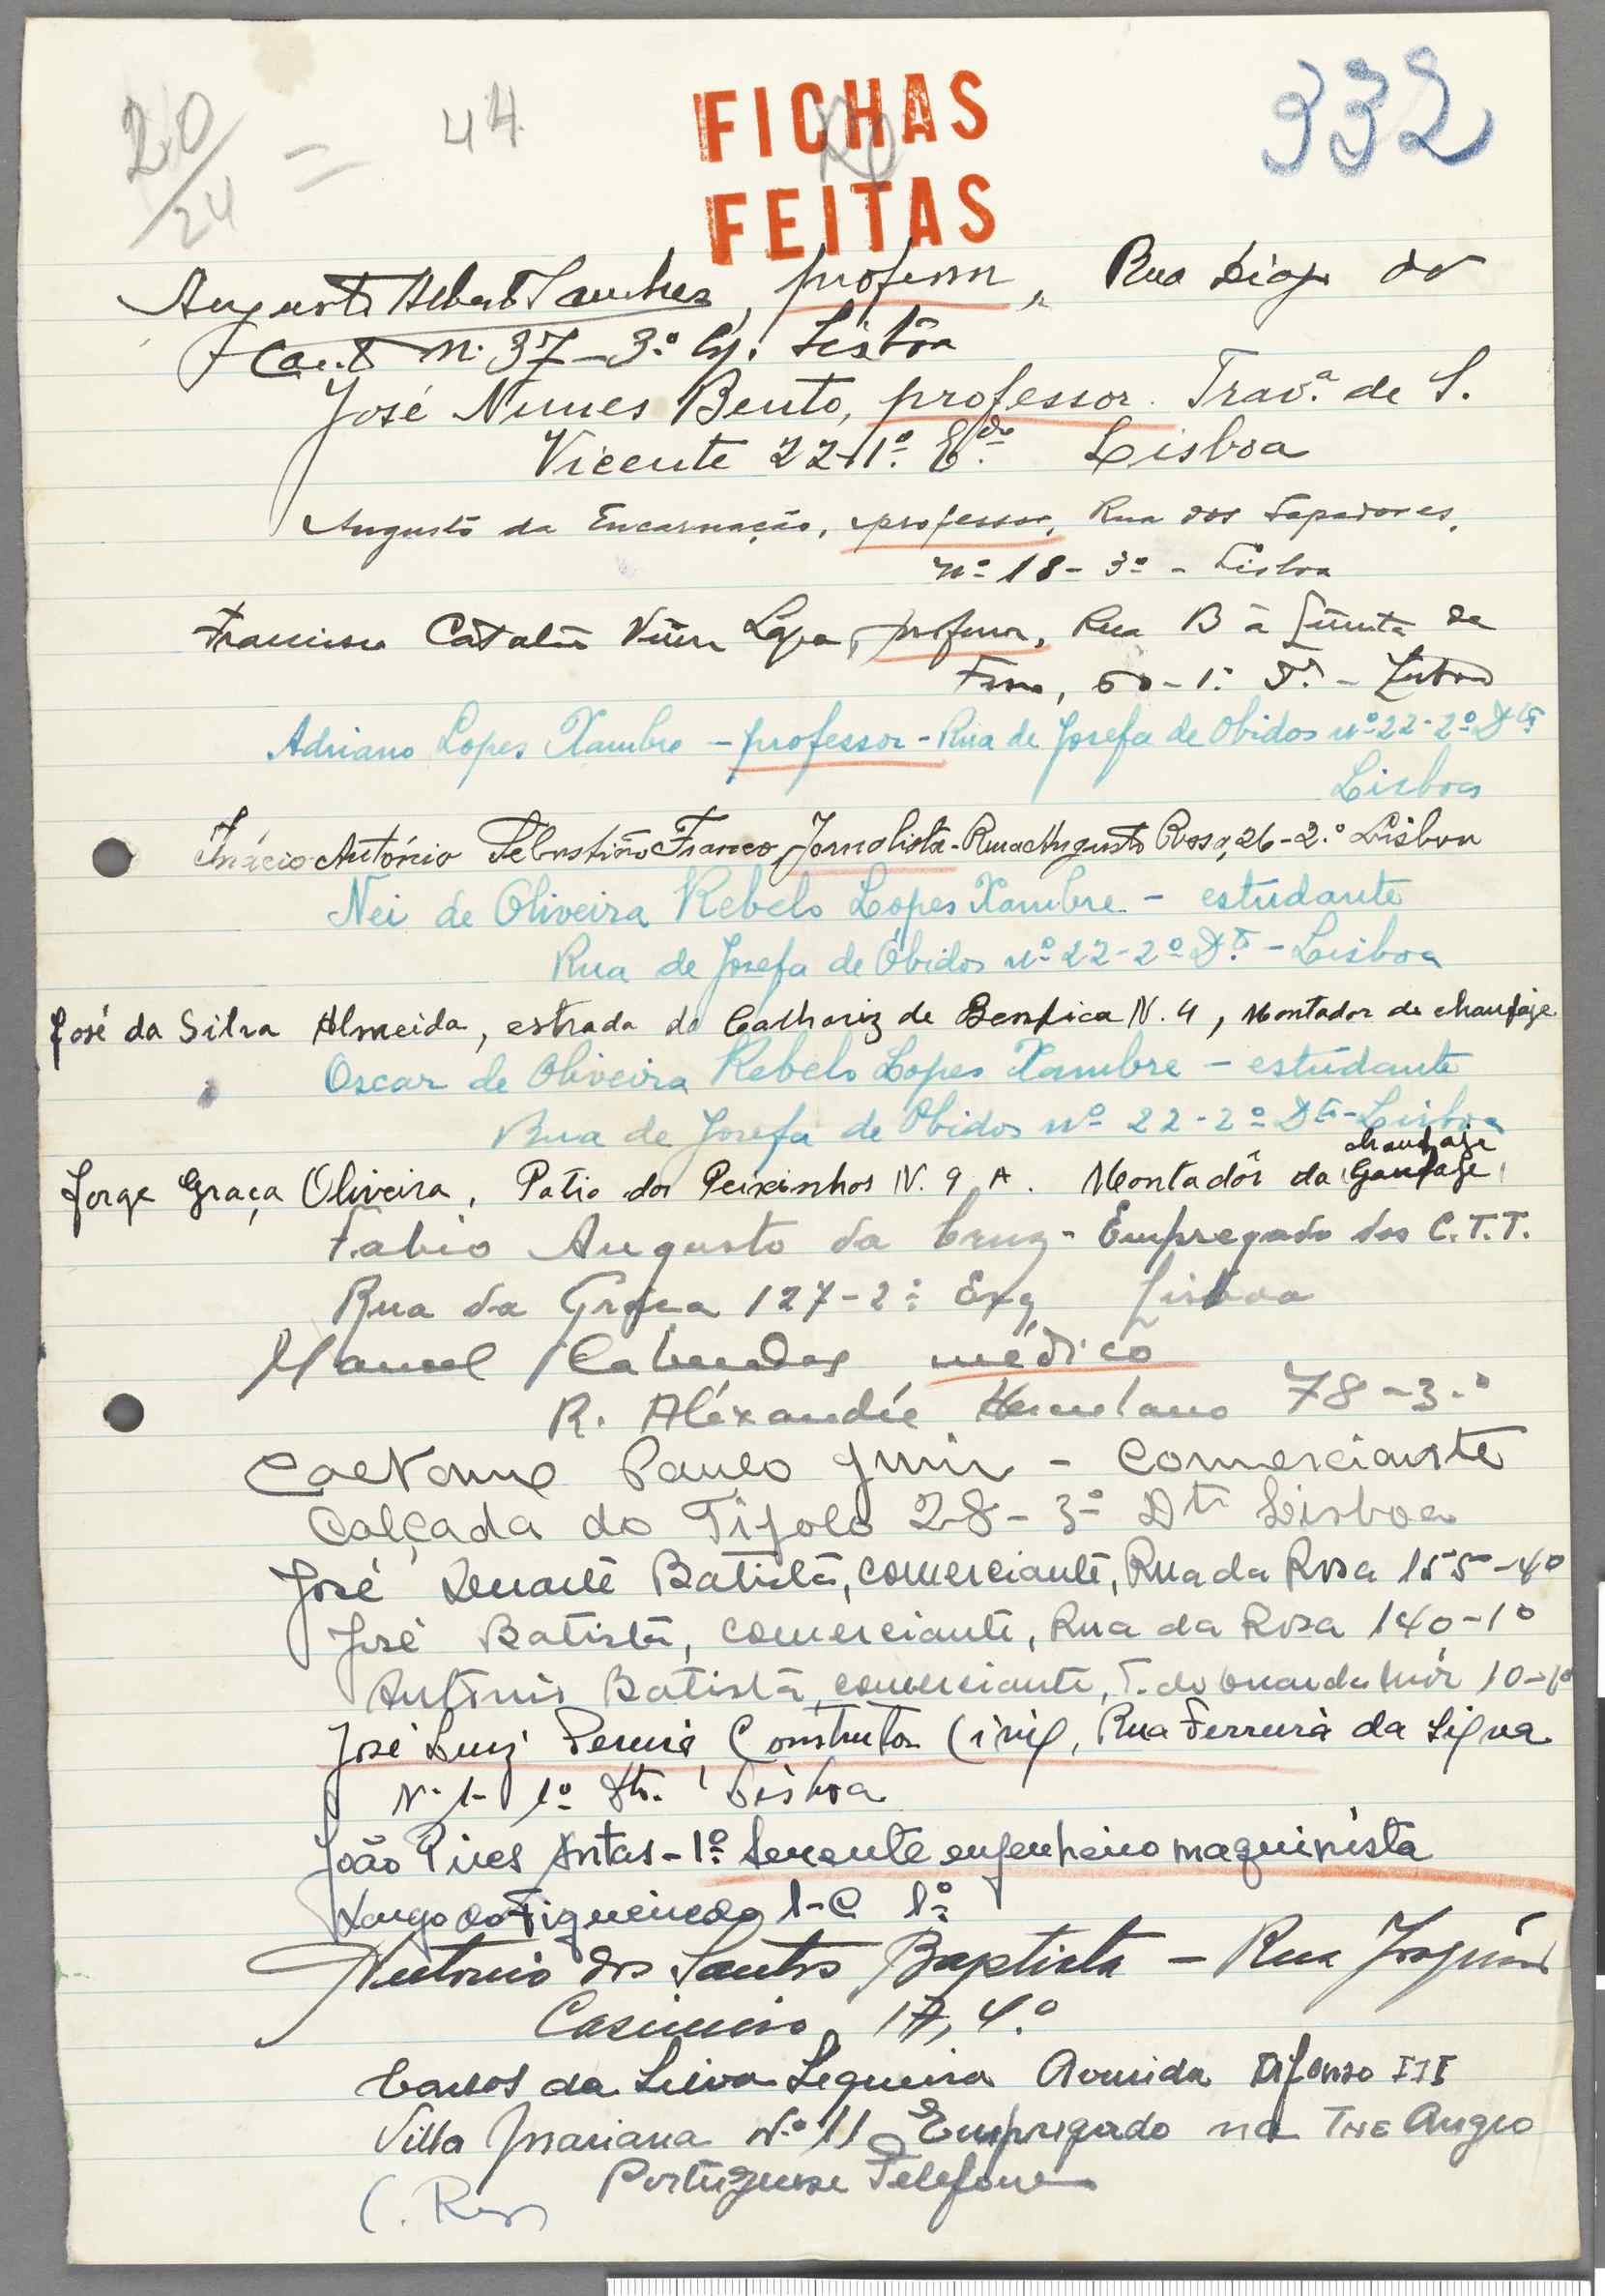 20/24 = 44
332
FICHAS
FEITAS
Augusto Albert Sanches, professor, Rua Diogo do
Couto n.º 37-3.º Esq. Lisboa
José Nunes Bento, professor. Trav.ª de S.
Vicente 22-1º. E.do Lisboa
Augusto da Encarnação, professor, Rua dos Sapadores,
nº 18-3º - Lisboa
Francisco Catalão Lopa, professor, Rua B à Quinta da
60-1.º - Lisboa
Adriano Lopes Xambre - professor - Rua de Josefa de Obidos nº 22-2º Dtº
Lisboa
Inácio António Sebastião Franco, Jornalista - Rua Augusto Rosa, 26-2.º Lisboa
Nei de Oliveira Rebelo Lopes Xambre - estudante
Rua de Josefa de Óbidos nº 22-2º Dtº - Lisboa
José da Silva Almeida, estrada do Calhariz de Benfica N. 4, Montador de chaufaje
Oscar de Oliveira Rebelo Lopes Xambre - estudante
Rua de Josefa de Obidos nº 22-2º Dtº - Lisboa
chaufaje
Jorge Graça Oliveira, Patio dos Peixinhos N. 9 A. Montadôr da Gaufage
Fabio Augusto da Cruz - Empregado dos C.T.T.
Rua da Graça 127-2º Esq Lisboa
Manuel médico
R. Aléxandre Herculano 78-3.º
Caetano Paulo - Comerciante
Calçada do Tijolo 28-3º Dtº Lisboa
José Duarte Batista, comerciante, Rua da Rosa 155-4º
José Batista, comerciante, Rua da Rosa 140-1º
António Batista, comerciante, T. do 10-1º
José Luiz Pereira Construtor Civil, Rua Ferreira da Silva
Nº 1- 1º Dtº. Lisboa
João Pires Antas - 1º tenente engenheiro maquinista
Largo do Figueiredo 1-C 1º
Antonio dos Santos Baptista - Rua Joaquim
Casimiro, 17, 4.º
Carlos da Silva Sequeira Avenida Afonso III
Villa Mariana Nº 11 Empregado na The Anglo
Portuguese Telefone